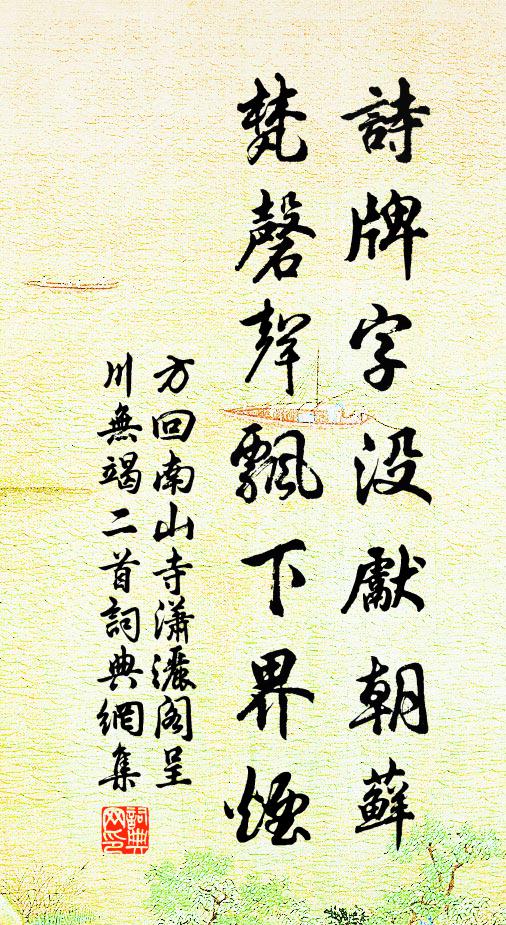 詩牌字没獻朝蘚
梵磬聲飄下界煙
方回南山寺瀟灑閣呈
川無竭二首詞典網集
詞典网印